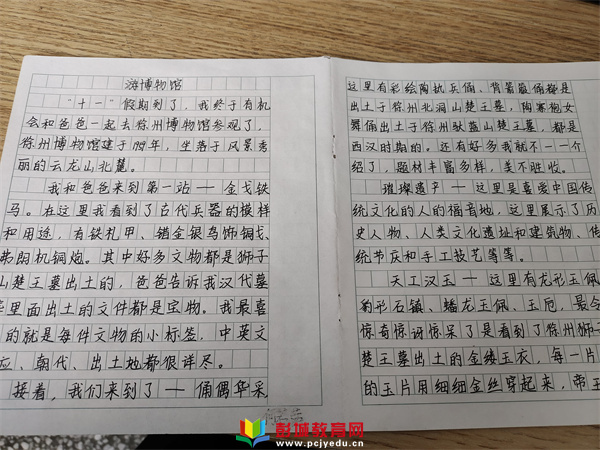 游博物馆
“十一”假期到了，我终于有机
会和爸爸一起去徐州博物馆参观了，
徐州博物馆建于1959年，坐落于风景秀
丽的云龙山北麓。
我和爸爸来到第一站——金戈铁
马。在这里我看到了古代兵器的模样
和用途，有铁札甲、错金银鸟饰铜戈、
弗朗机铜炮。其中好多文物都是狮子
山楚王墓出土的，爸爸告诉我汉代墓
里面出土的文件都是宝物。我最喜
的就是每件文物的小标签，中英文
应、朝代、出土地都很详尽。
接着，我们来到了——俑偶华采
这里有彩绘陶执兵俑、背箭箙俑都是
出土于徐州北洞山楚王墓，陶寨袍女
舞俑出土于徐州驮蓝山楚王墓，都是
西汉时期的。还有好多我就不一一个
绍了，题材丰富多样，美不胜收。
璀璨遗产——这里是喜爱中国传
统文化的人的福音地，这里展示了历
史人物、人类文化遗址和建筑物、传
统节庆和手工技艺等等。
天工汉玉——这里有龙形玉佩、
豹形石镇、蟠龙玉佩、玉卮，最令
惊奇惊讶惊呆了是看到了徐州狮子
楚王墓出土的金缕玉衣，每一片
的玉片用细细金丝穿起来，帝王
彭城教育网
www.pcjyedu.cn